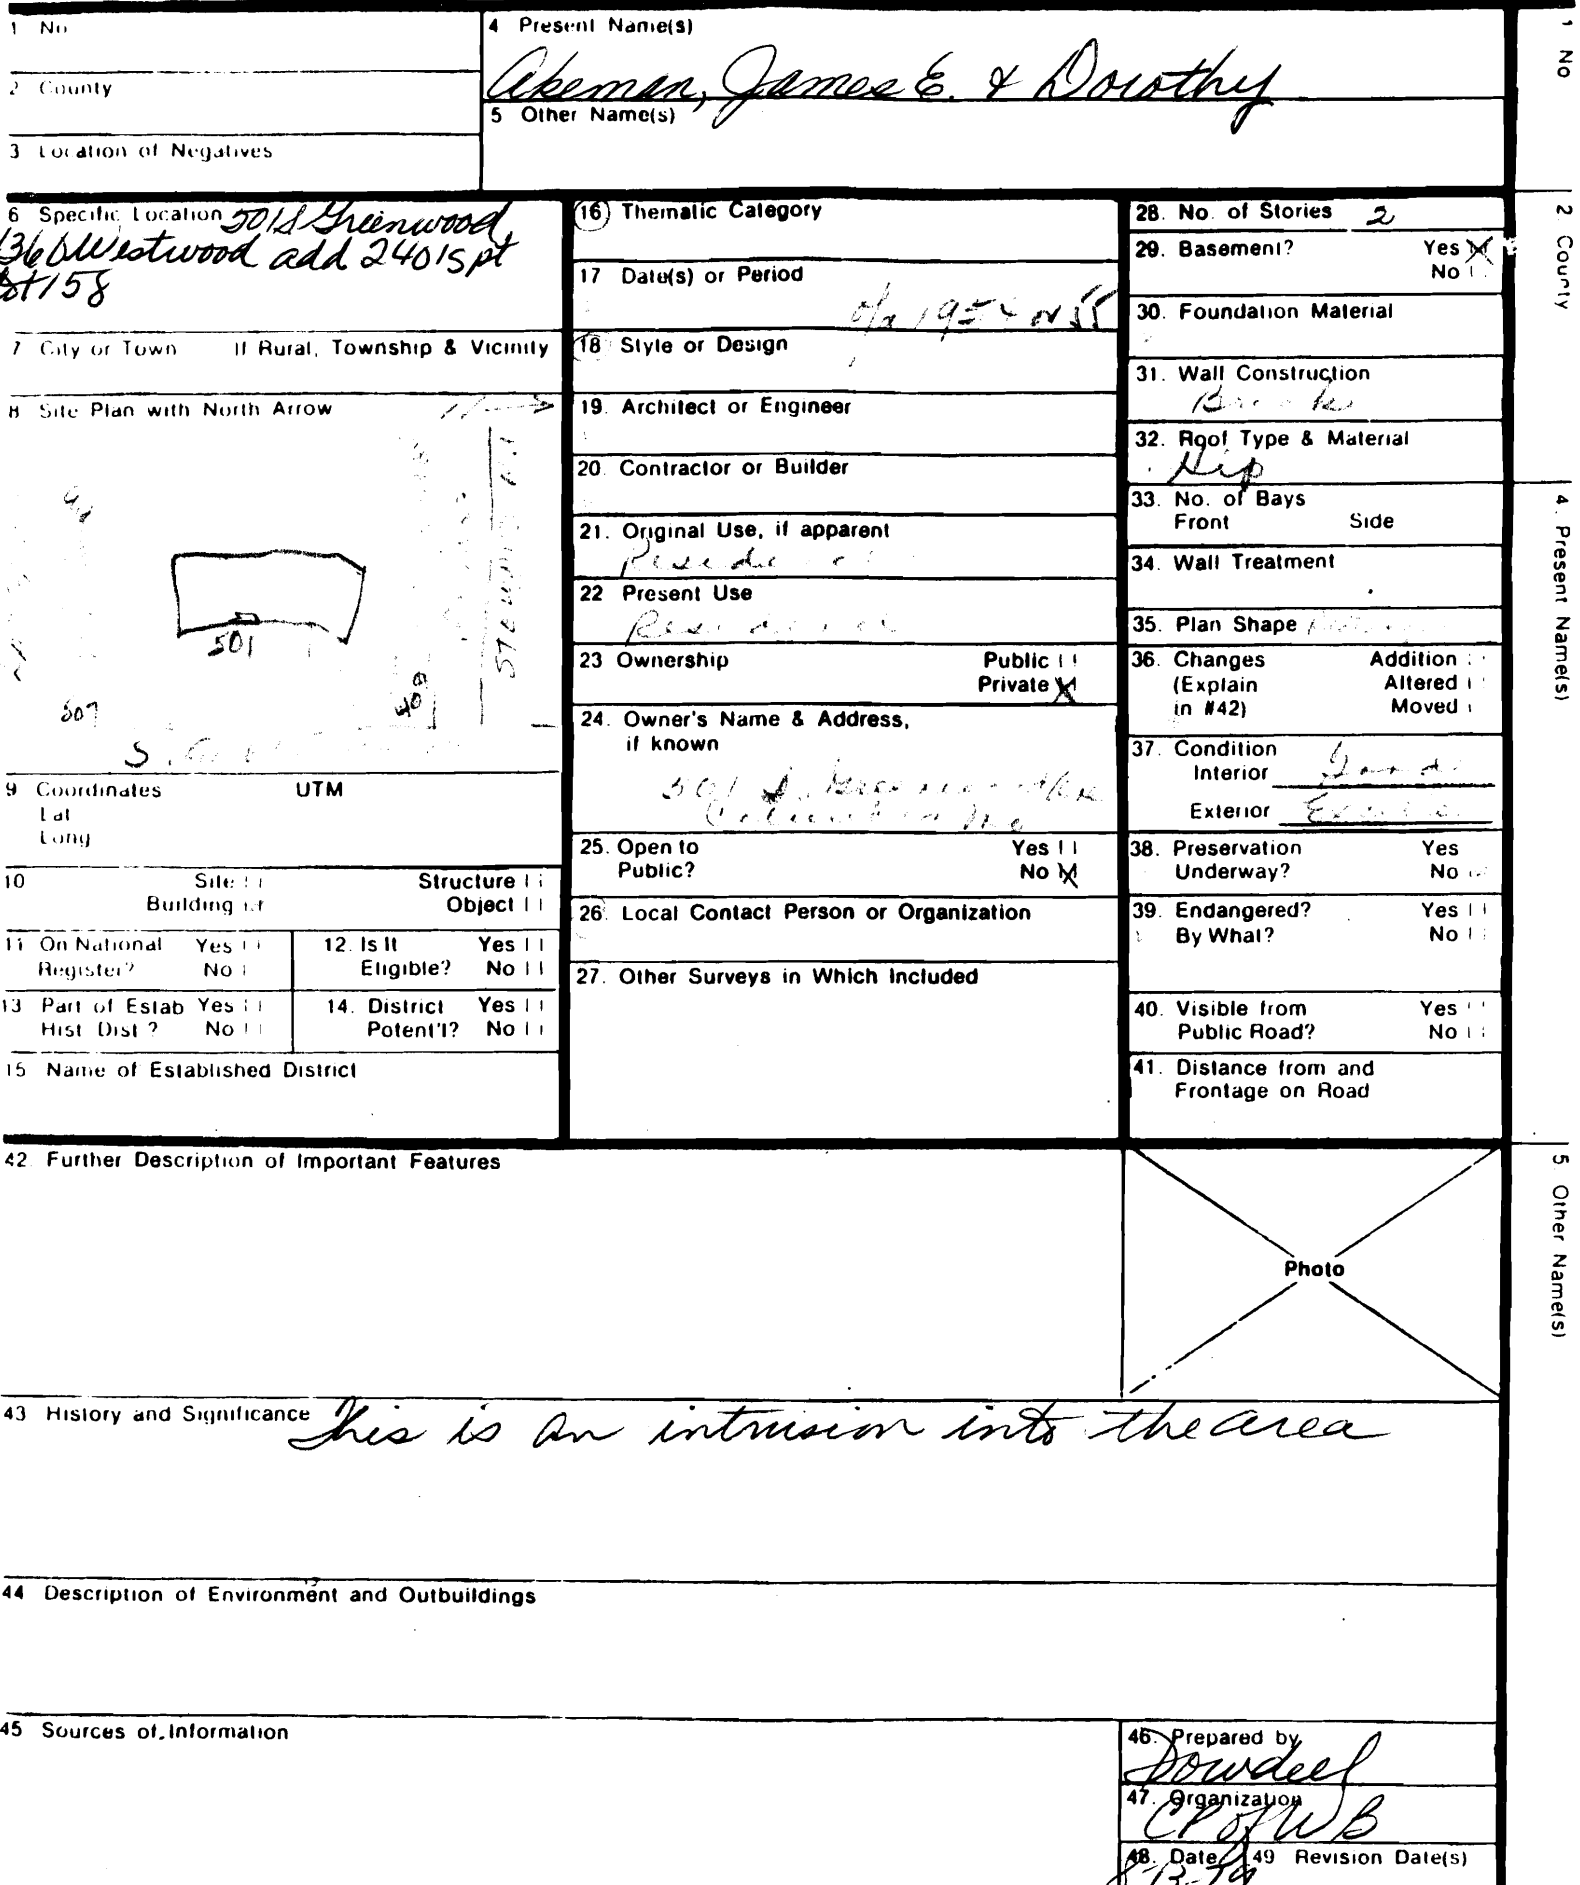 1 No
4 Present Name(s)
Akeman, James E. & Dorothy
2 County
5 Other Name(s)
3 Location of Negatives
6 Specific Location 501 S Greenwood
Westwood add 240's pt
158
7 City or Town If Rural, Township & Vicinity
8 Site Plan with North Arrow
501
507
S.
9 Coordinates UTM
Lat
Long
10 Site Structure
Building Object
11 On National Register? Yes No
12. Is It Eligible? Yes No
13 Part of Estab Hist Dist? Yes No
14. District Potent'l? Yes No
15 Name of Established District
16 Thematic Category
17 Date(s) or Period
1954 or 55
18 Style or Design
19. Architect or Engineer
20. Contractor or Builder
21. Original Use, if apparent
22 Present Use
Residence
23 Ownership Public
Private X
24. Owner's Name & Address,
if known
501 S.
25. Open to Yes
Public? No X
26. Local Contact Person or Organization
27. Other Surveys in Which Included
28. No. of Stories 2
29. Basement? Yes X
No
30. Foundation Material
31. Wall Construction
Brick
32. Roof Type & Material
Hip
33. No. of Bays
Front Side
34. Wall Treatment
35. Plan Shape
36. Changes Addition
(Explain Altered
in #42) Moved
37. Condition
Interior Good
Exterior
38. Preservation Yes
Underway? No
39. Endangered? Yes
By What? No
40. Visible from Yes
Public Road? No
41. Distance from and
Frontage on Road
42. Further Description of Important Features
Photo
43 History and Significance This is an intrusion into the area
44 Description of Environment and Outbuildings
45 Sources of Information
46. Prepared by
Dowdell
47. Organization
CP of WB
48. Date 49 Revision Date(s)
8-13-79
1 No
2 County
4. Present Name(s)
5 Other Name(s)